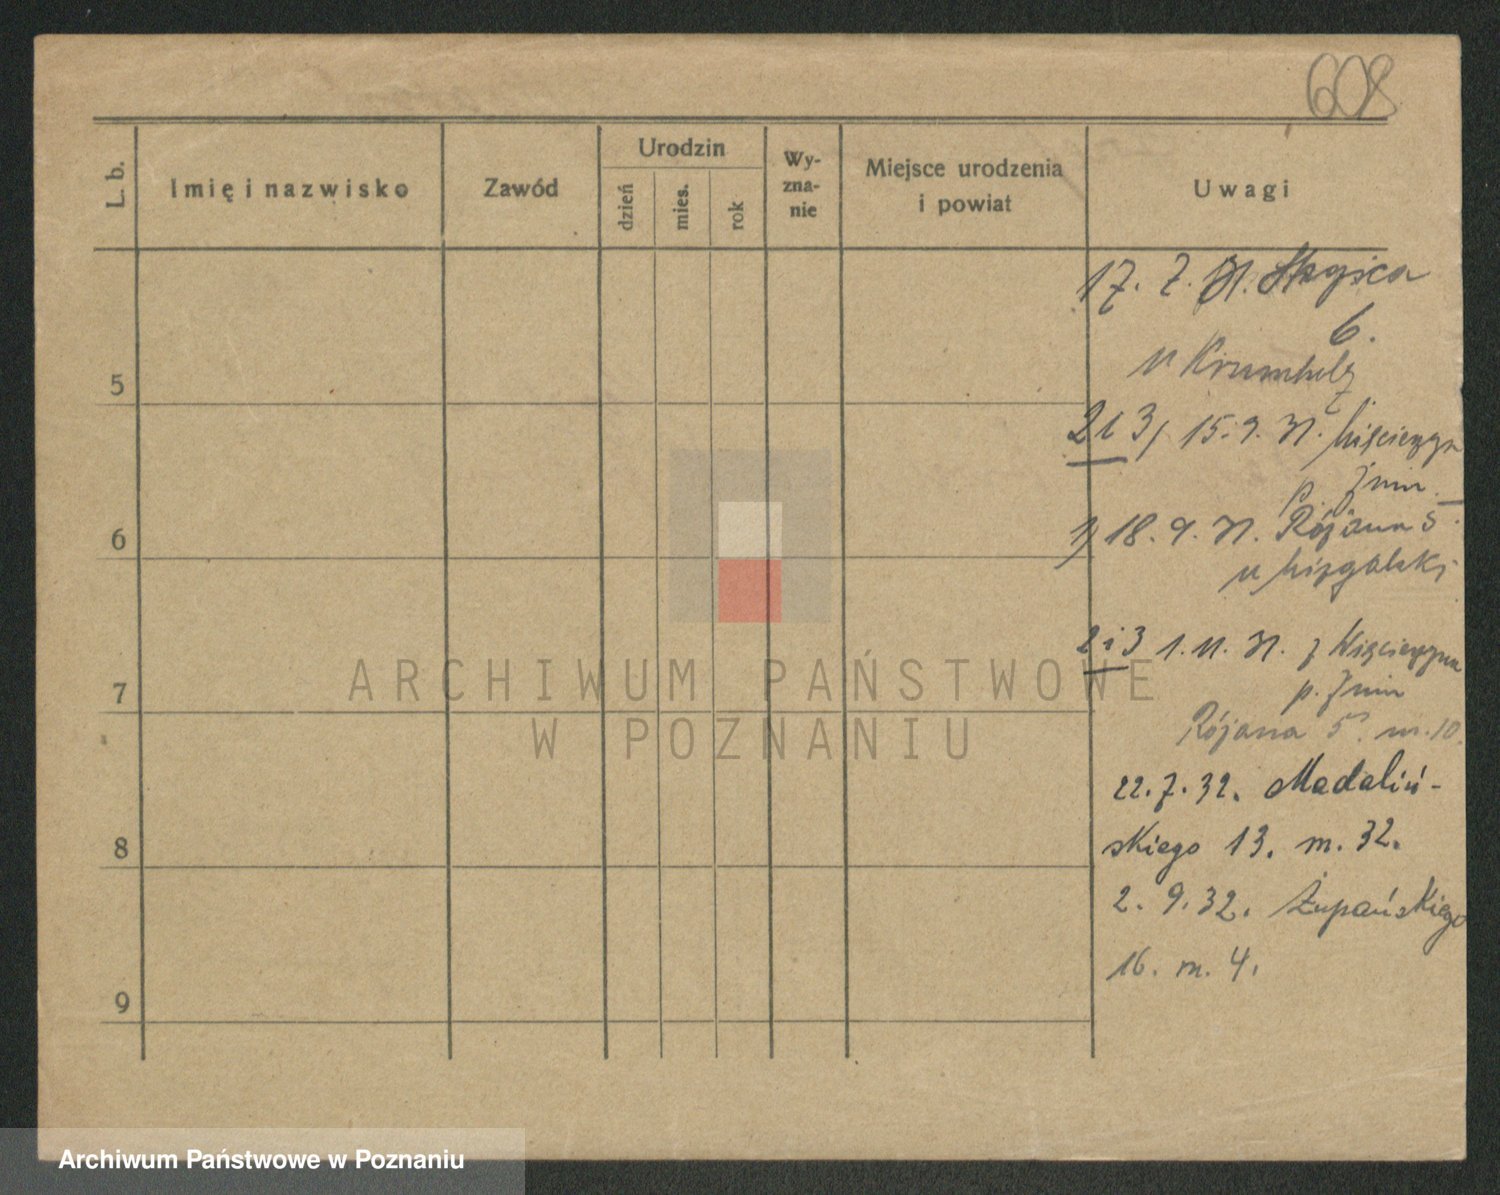 608
L. b.
Imię i nazwisko
Zawód
Urodzin
dzień
mies.
rok
Wy-
zna-
nie
Miejsce urodzenia
i powiat
Uwagi
17. 7. 31.
6.
u
5
2 i 3/ 15. 9. 31.
p. Żnin
1/ 18. 9. 31. Różana 5.
6
u
2 i 3 1. 11. 31. z
p. Żnin
7
Różana 5. m. 10.
22. 7. 32. Madaliń-
skiego 13. m. 32.
8
2. 9. 32. Żupańskiego
16. m. 4.
9
ARCHIWUM PAŃSTWOWE
W POZNANIU
Archiwum Państwowe w Poznaniu